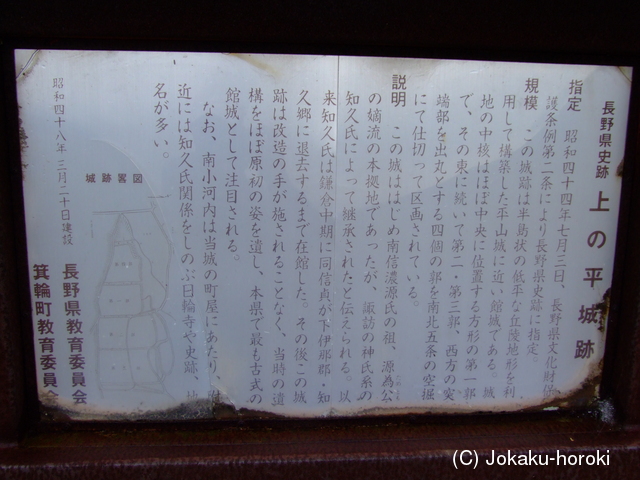 長野県史跡 上の平城跡
指定 昭和四十四年七月三日、長野県文化財保
護条例第二条により長野県史跡に指定。
規模 この城跡は半島状の低平な丘陵地形を利
用して構築した平山城に近い館城である。城
地の中核はほぼ中央に位置する方形の第一郭
で、その東に続いて第二、第三郭、西方の突
端部を出丸とする四個の郭を南北五条の空掘
にて仕切って区画されている。
説明 この城ははじめ南信濃源氏の祖、源為公
の嫡流の本拠地であったが、諏訪の神氏系の
知久氏によって継承されたと伝えられる。以
来知久氏は鎌倉中期に同信貞が下伊那郡・知
久郷に退去するまで在館した。その後この城
跡は改造の手が施されることなく、当時の遺
構をほぼ原初の姿を遺し、本県で最も古式の
館城として注目される。
なお、南小河内は当城の町屋にあたり、附
近には知久氏関係をしのぶ日輪寺や史跡、地
名が多い。
城跡略図
昭和四十八年三月二十日建設
長野県教育委員会
箕輪町教育委員会
(C) Jokaku-horoki